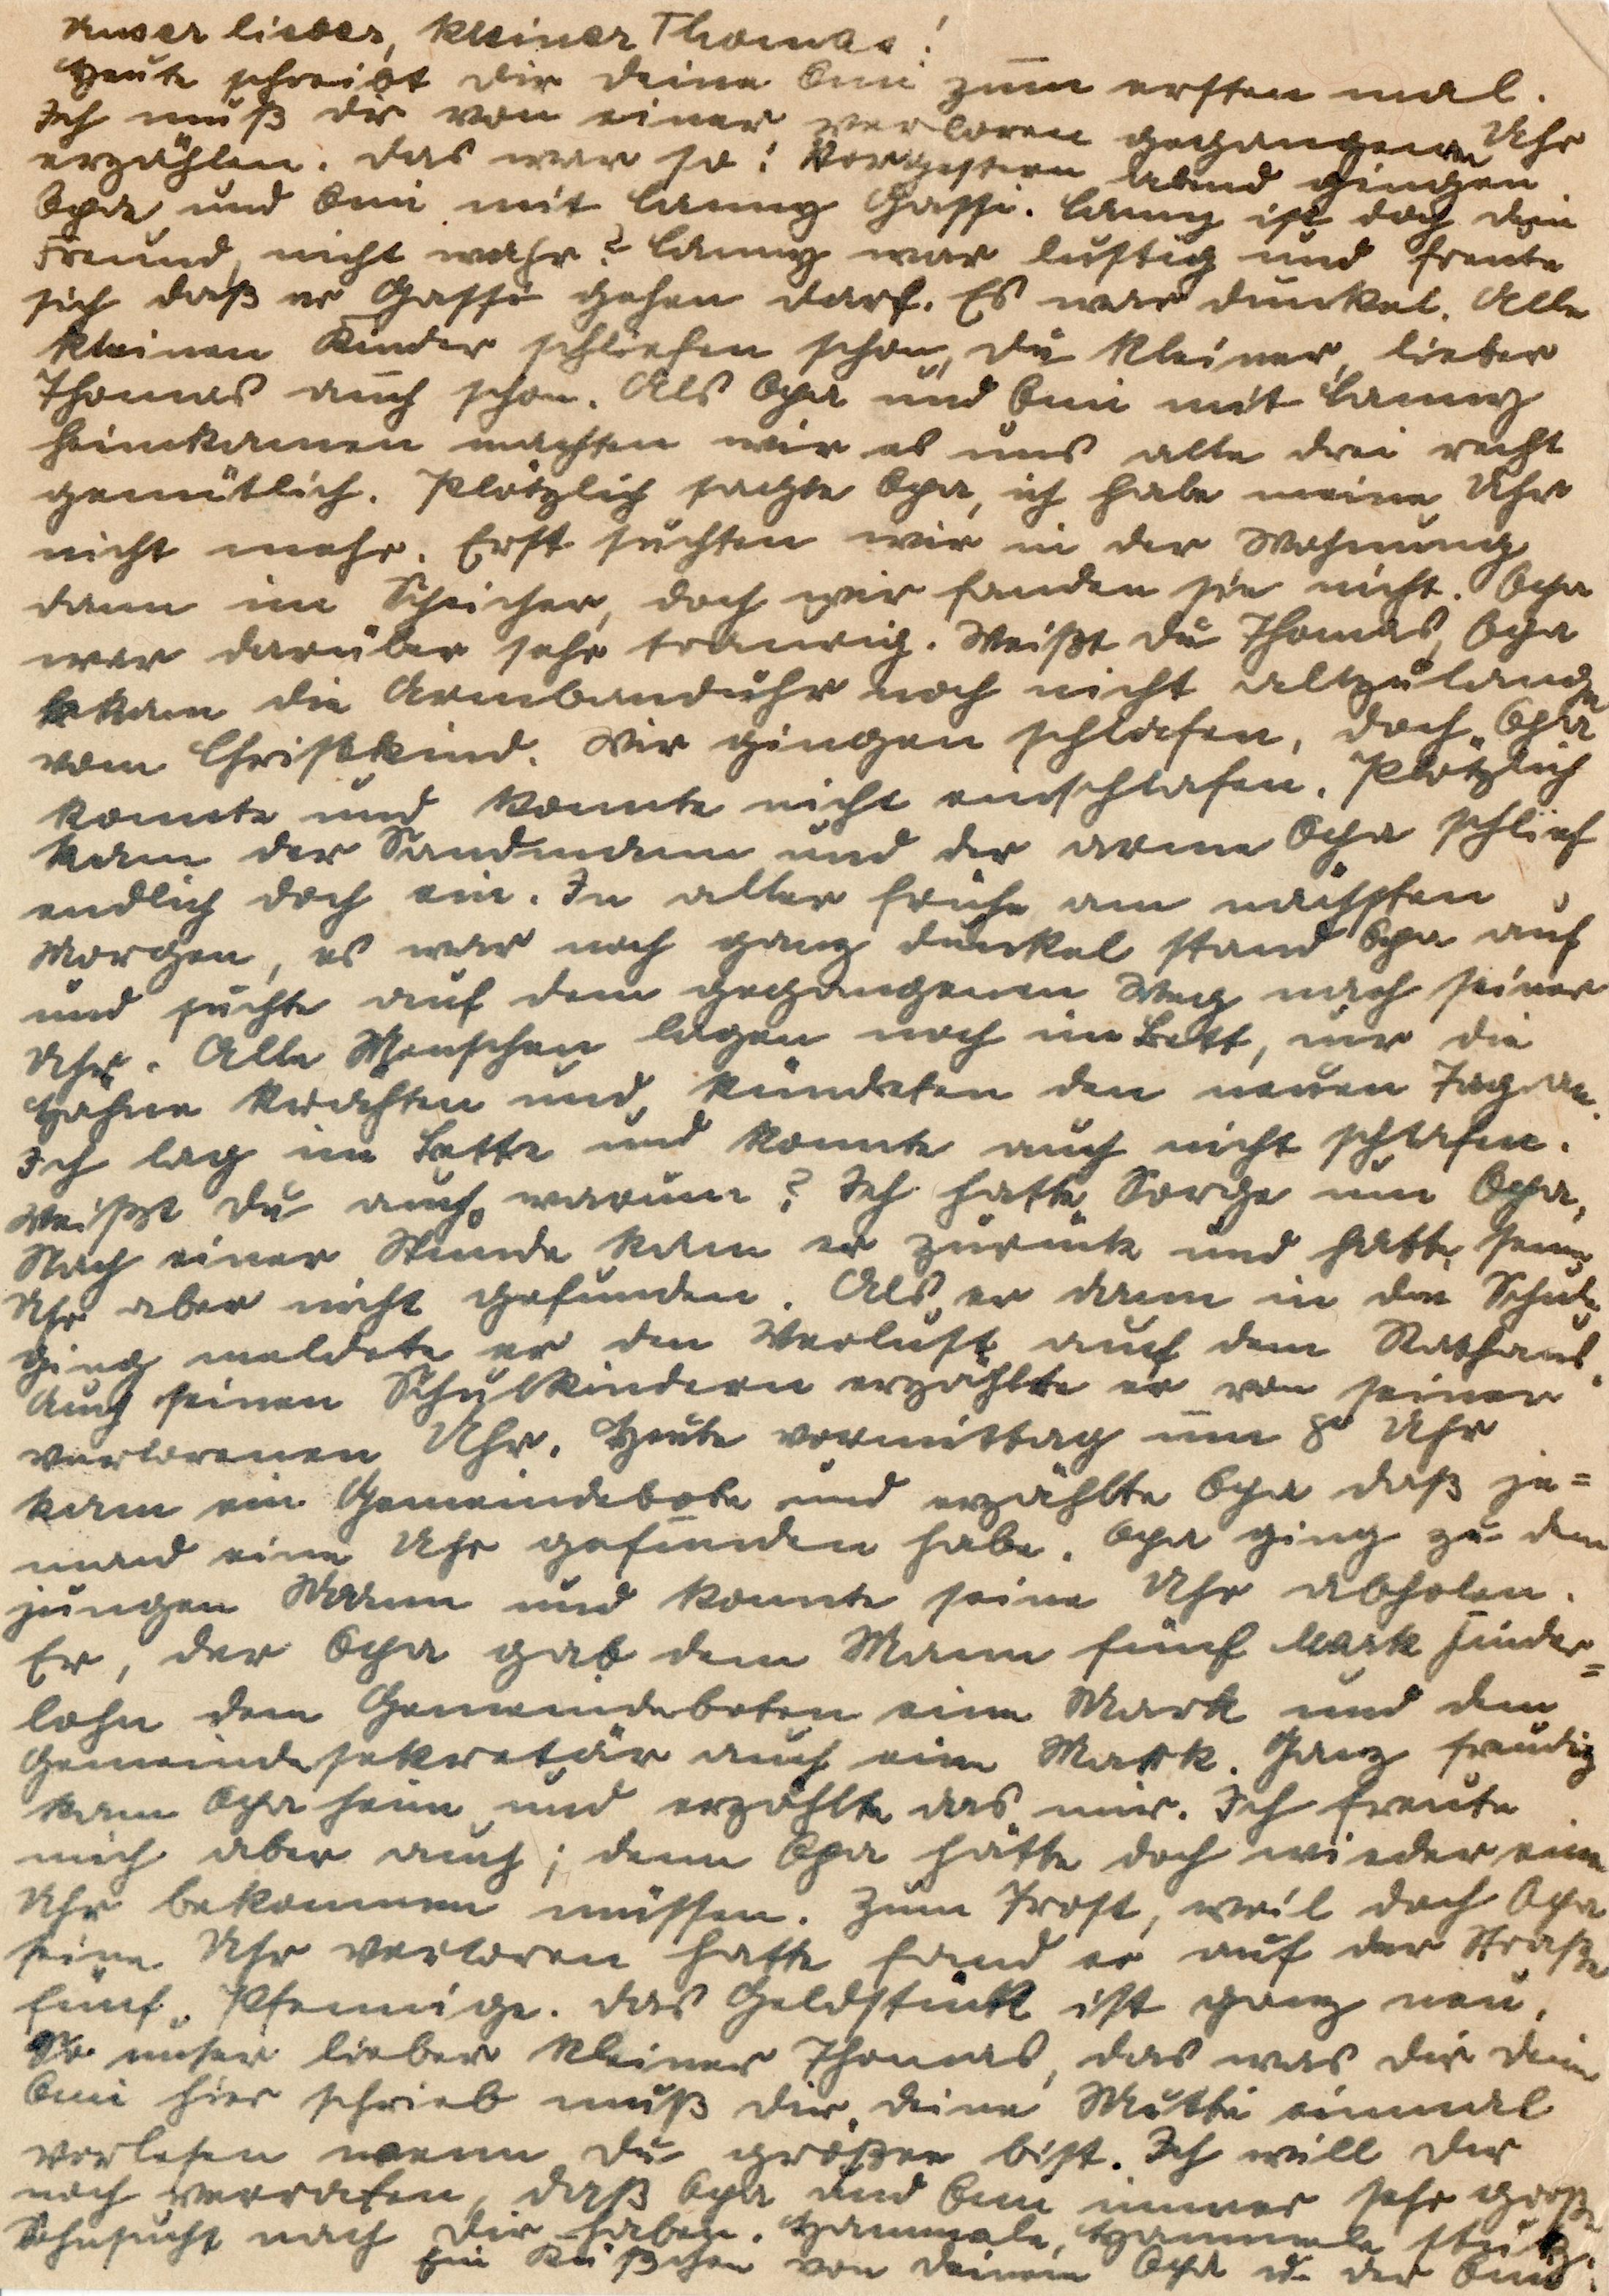 Unser lieber, kleiner Thomas!
Heute schreibt dir deine Omi zum ersten mal.
Ich muß dir von einer verloren gegangenen Uhr
erzählen. Das war so: Vorgestern abend gingen
Opa und Omi mit Lanny Gassi. Lanny ist doch dein
Freund, nicht wahr? Lanny war lustig und freute
sich daß er Gassi gehen darf. Es war dunkel. Alle
kleinen Kinder schliefen schon, du kleiner, lieber
Thomas auch schon. Als Opa und Omi mit Lanny
heimkamen machten wir es uns alle drei recht
gemütlich. Plötzlich sagte Opa, ich habe meine Uhr
nicht mehr. Erst suchten wir in der Wohnung
dann im Speicher, doch wir fanden sie nicht. Opa
war darüber sehr traurig. Weißt du Thomas, Opa
bekam die Armbanduhr noch nicht allzulange
vom Christkind. Wir gingen schlafen, doch Opa
konnte und konnte nicht einschlafen. Plötzlich
kam der Sandmann und der arme Opa schlief
endlich doch ein. In aller frühe am nächsten
Morgen, es war noch ganz dunkel stand Opa auf
und suchte auf dem gegangenen Weg nach seiner
Uhr. Alle Menschen lagen noch im Bett, nur die
Hähne krähten und kündeten den neuen Tag an.
Ich lag im Bette und konnte auch nicht schlafen.
Weißt du auch warum? Ich hatte Sorge um Opa,
Nach einer Stunde kam er zurück und hatte seine
Uhr aber nicht gefunden. Als er dann in die Schule
ging meldete er den Verlust auf dem Rathaus.
Auch seinen Schulkindern erzählte er von seiner
verlorenen Uhr. Heute vormittag um 8 Uhr
kam ein Gemeindebote und erzählte Opa daß je=
mand eine Uhr gefunden habe. Opa ging zu dem
jungen Mann und konnte seine Uhr abholen.
Er, der Opa gab dem Mann fünf Mark Finder=
lohn dem Gemeindeboten eine Mark und dem
Gemeindesekretär auch eine Mark. Ganz freudig
kam Opa heim und erzählte das mir. Ich freute
mich aber auch; denn Opa hätte doch wieder eine
Uhr bekommen müssen. Zum Trost, weil doch Opa
seine Uhr verloren hatte fand er auf der Straße
fünf Pfennige. Das Geldstück ist ganz neu.
So unser lieber kleiner Thomas, das was dir deine
Omi hier schrieb muß dir deine Mutti einmal
vorlesen wenn du größer bist. Ich will dir
noch verraten, daß Opa und Omi immer sehr große
Sehnsucht nach dir haben. Hammele, Hammele stutz.
Ein Küßchen von deinem Opa u. der Omi.